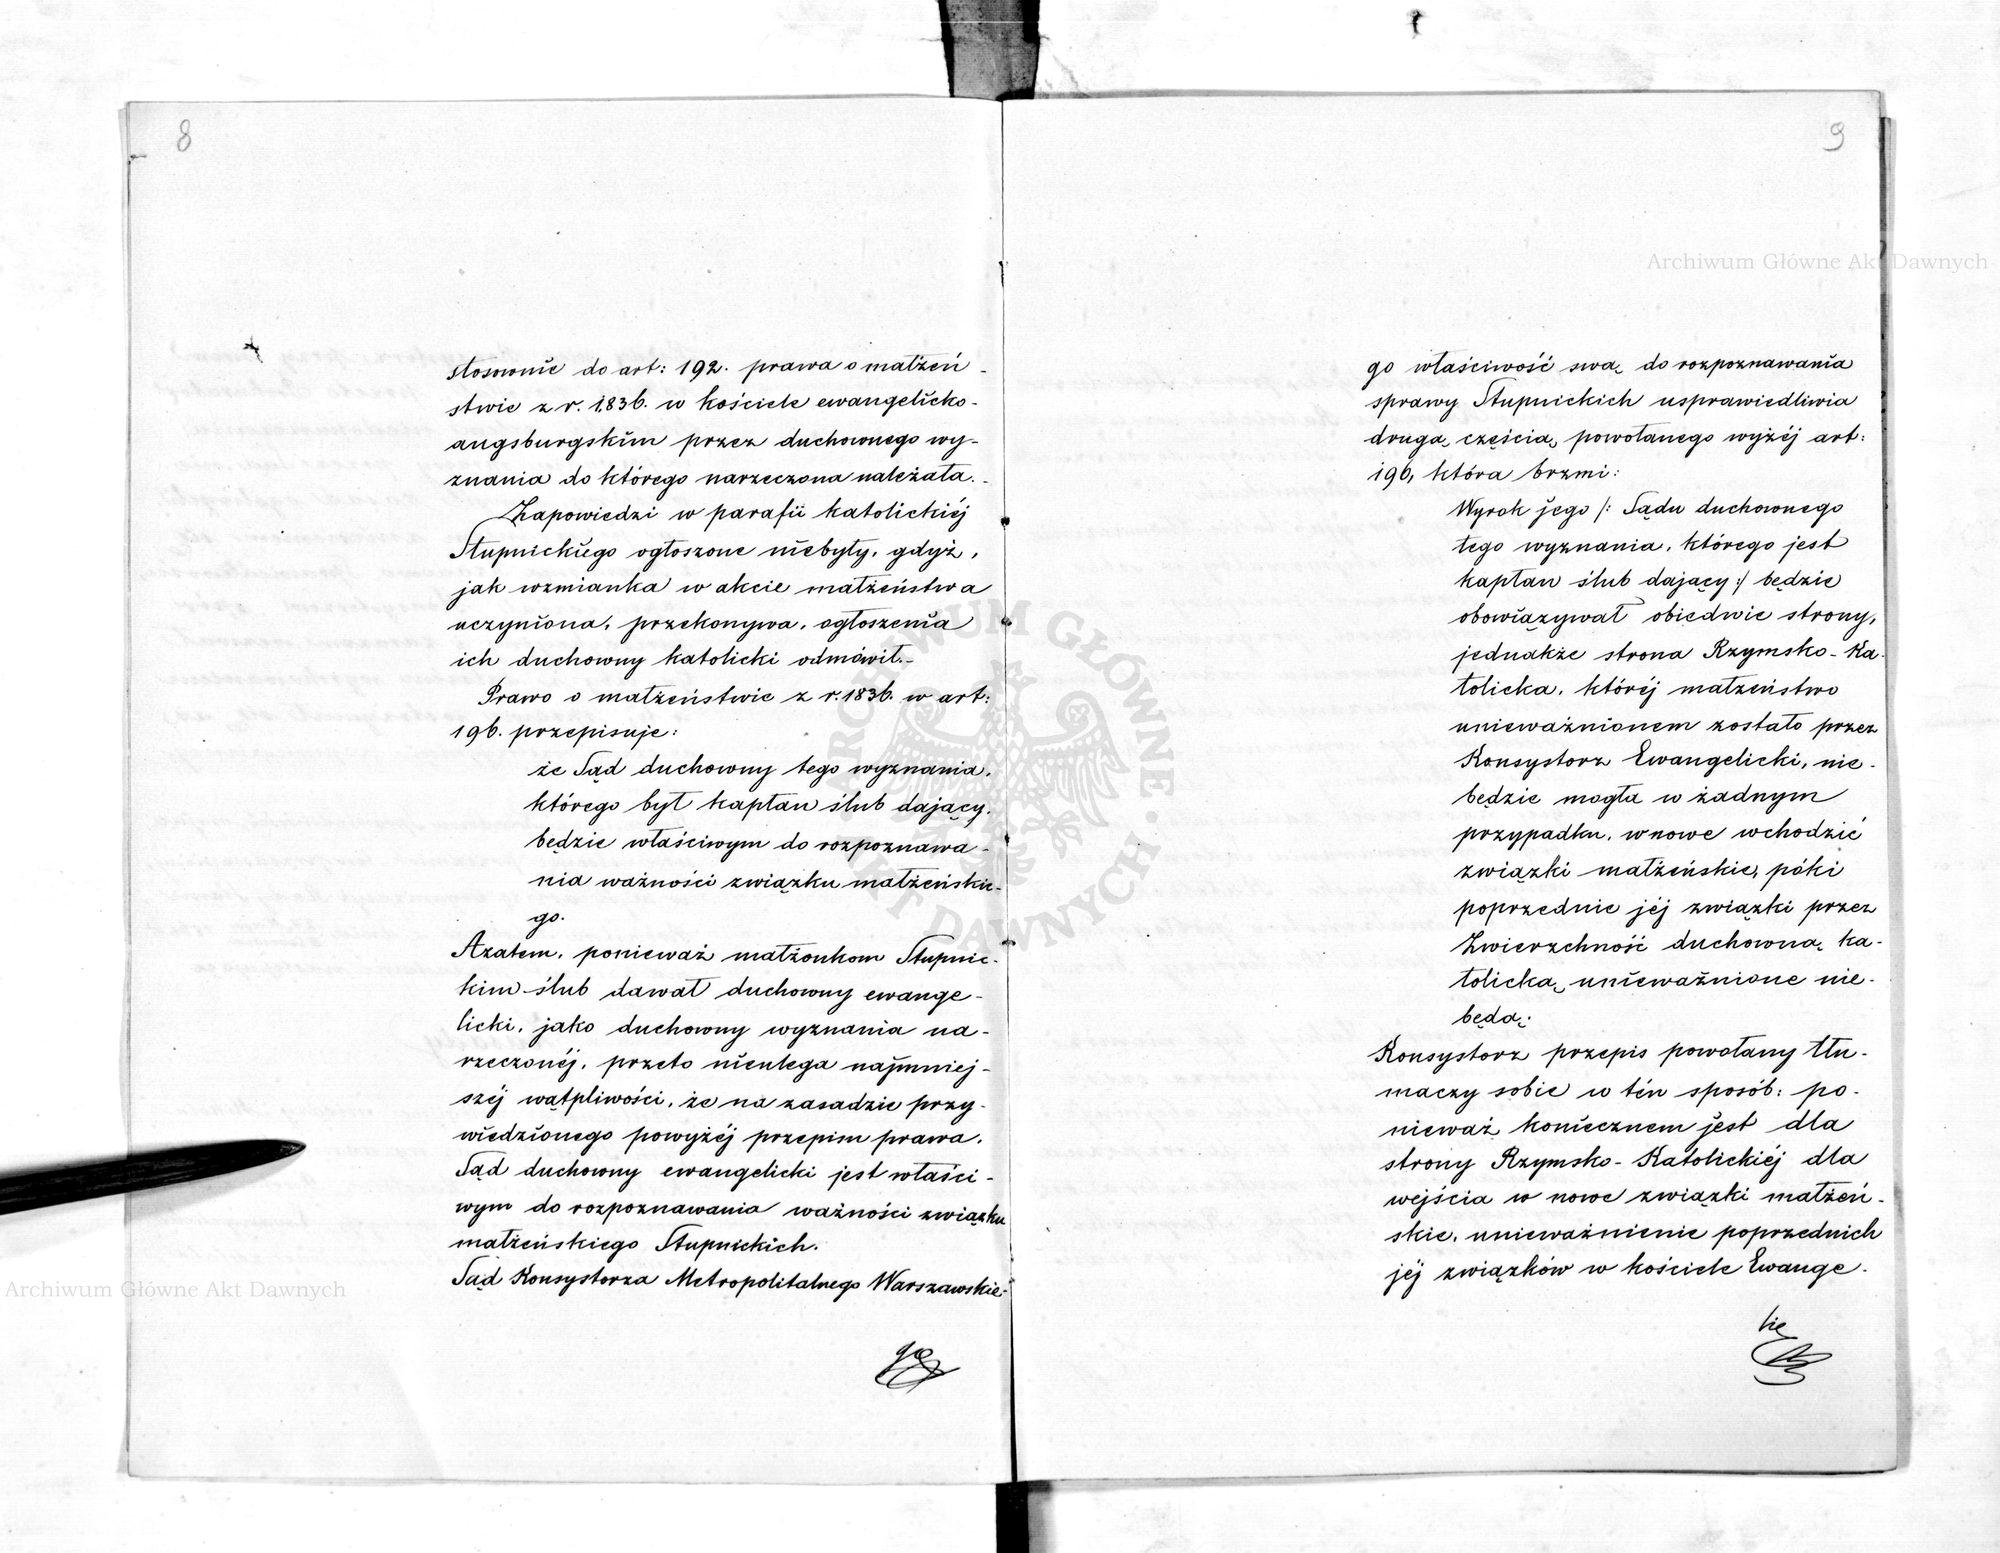 8
stosownie do art: 192. prawa o małżeń-
stwie z r. 1836. w kościele ewangelicko-
augsburgskim przez duchownego wy-
znania do którego narzeczona należała.-
Zapowiedzi w parafii katolickiéj
Słupnickiego ogłoszone niebyły, gdyż,
jak wzmianka w akcie małżeństwa
uczyniona, przekonywa, ogłoszenia
ich duchowny katolicki odmówił.-
Prawo o małżeństwie z r. 1836. w art:
196. przepisuje:
że Sąd duchowny tego wyznania,
którego był kapłan ślub dający,
będzie właściwym do rozpoznawa-
nia ważności związku małżeńskie-
go.
Azatem, ponieważ małżonkom Słupnic-
kim ślub dawał duchowny ewange-
licki, jako duchowny wyznania na-
rzeczonéj, przeto nieulega najmniej-
széj wątpliwości, że na zasadzie przy-
wiedzionego powyżéj przepisu prawa,
Sąd duchowny ewangelicki jest właści-
wym do rozpoznawania ważności związku
małżeńskiego Słupnickich.
Sąd Konsystorza Metropolitalnego Warszawskie-
go
9
go właściwość swą do rozpoznawania
sprawy Słupnickich usprawiedliwia
drugą częścią powołanego wyżéj art:
196, która brzmi:
Wyrok jego /: Sądu duchownego
tego wyznania, którego jest
kapłan ślub dający :/ będzie
obowiązywał obiedwie strony,
jednakże strona Rzymsko-Ka-
tolicka, któréj małżeństwo
unieważnionem zostało przez
Konsystorz Ewangelicki, nie-
będzie mogła w żadnym
przypadku, wnowe wchodzić
związki małżeńskie, póki
poprzednie jéj związki przez
Zwierzchność duchowną ka-
tolicką unieważnione nie-
będą:
Konsystorz przepis powołany tłu-
maczy sobie w tén sposób: po-
nieważ koniecznem jest dla
strony Rzymsko-Katolickiéj dla
wejścia w nowe związki małżeń-
skie, unieważnienie poprzednich
jéj związków w kościele Ewange-
lic
Archiwum Główne Akt Dawnych
Archiwum Główne Akt Dawnych
ARCHIWUM GŁÓWNE AKT DAWNYCH